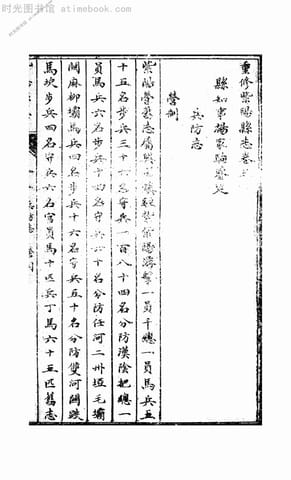 时光图书馆 - atimebook.com
重修紫陽縣志卷五
縣知事楊家駒督定
兵防志
營制
紫陽營舊志
一員千總一員馬兵五
十五名步兵三十六名守兵一百八十四名分防漢陰把總一
員馬兵六名步兵十四名守兵六十名分防任河二州埡毛壩
關麻柳壩馬兵六名步兵十六名守兵五十名分防雙河關
馬坎步兵四名守兵十六名官員馬十匹兵丁馬六十五匹舊志
兵防志 營制